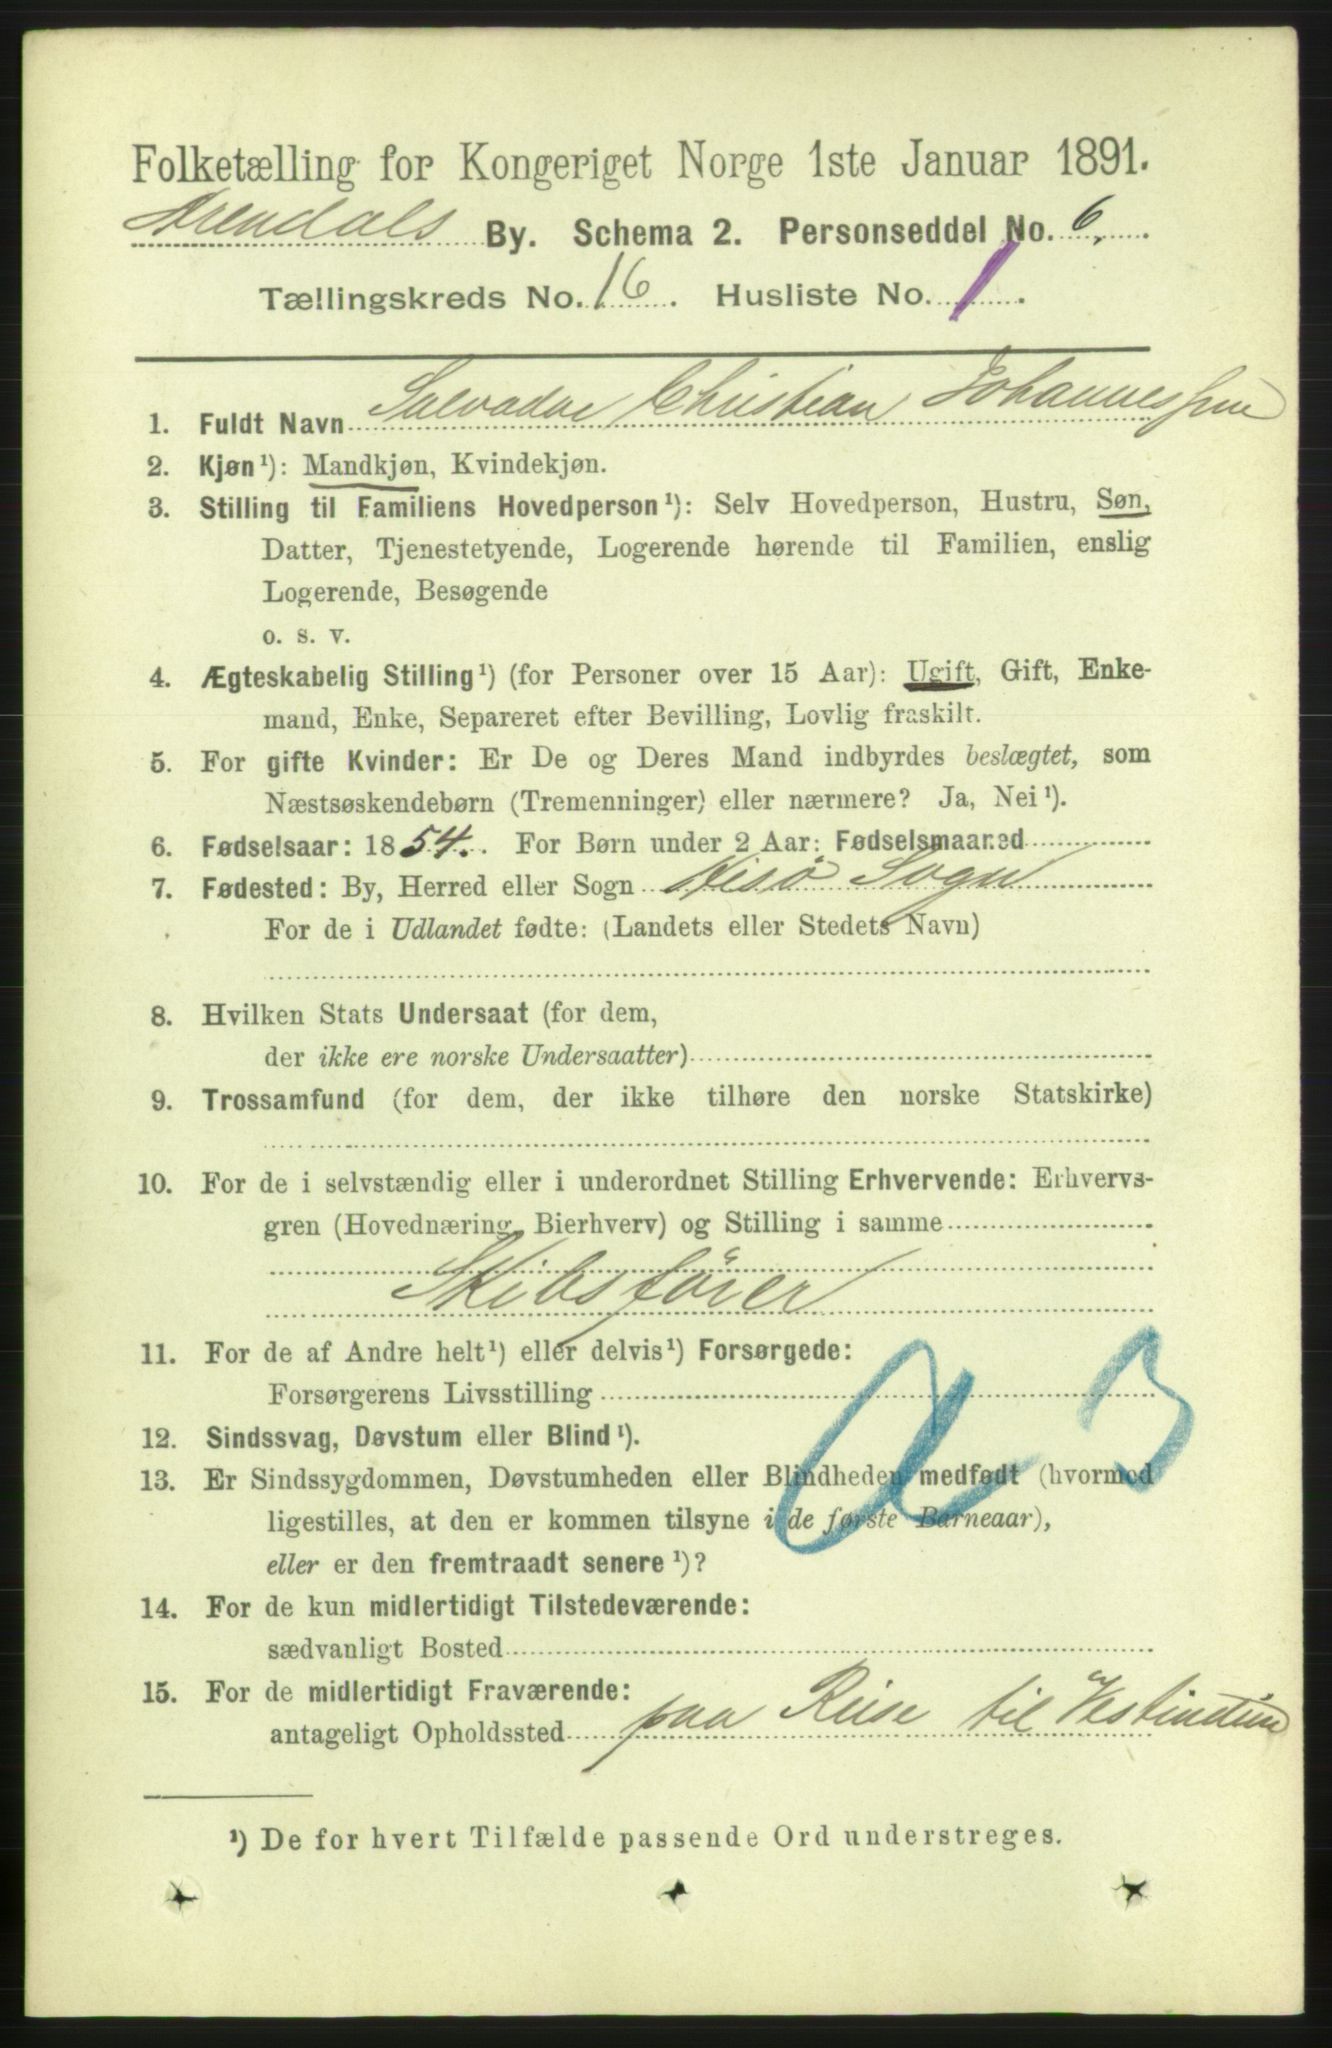 Folketælling for Kongeriget Norge 1ste Januar 1891.
Arendals By. Schema 2. Personseddel No. 6.
Tællingskreds No. 16. Husliste No. 1.
1. Fuldt Navn Salvador Christian Johannessen
2. Kjøn¹): Mandkjøn, Kvindekjøn.
3. Stilling til Familiens Hovedperson¹): Selv Hovedperson, Hustru, Søn,
Datter, Tjenestetyende, Logerende hørende til Familien, enslig
Logerende, Besøgende
o. s. v.
4. Ægteskabelig Stilling¹) (for Personer over 15 Aar): Ugift, Gift, Enke-
mand, Enke, Separeret efter Bevilling, Lovlig fraskilt.
5. For gifte Kvinder: Er De og Deres Mand indbyrdes beslægtet, som
Næstsøskendebørn (Tremenninger) eller nærmere? Ja, Nei¹).
6. Fødselsaar: 1854. For Børn under 2 Aar: Fødselsmaaned
7. Fødested: By, Herred eller Sogn Hisö Sogn
For de i Udlandet fødte: (Landets eller Stedets Navn)
8. Hvilken Stats Undersaat (for dem,
der ikke ere norske Undersaatter)
9. Trossamfund (for dem, der ikke tilhøre den norske Statskirke)
10. For de i selvstændig eller i underordnet Stilling Erhvervende: Erhvervs-
gren (Hovednæring, Bierhverv) og Stilling i samme
Skibsförer
11. For de af Andre helt¹) eller delvis¹) Forsørgede:
Forsørgerens Livsstilling
12. Sindssvag, Døvstum eller Blind¹).
13. Er Sindssygdommen, Døvstumheden eller Blindheden medfødt (hvormed
ligestilles, at den er kommen tilsyne i de første Barneaar),
eller er den fremtraadt senere¹)?
14. For de kun midlertidigt Tilstedeværende:
sædvanligt Bosted
15. For de midlertidigt Fraværende:
antageligt Opholdssted paa Reise til Vestindien
¹) De for hvert Tilfælde passende Ord understreges.